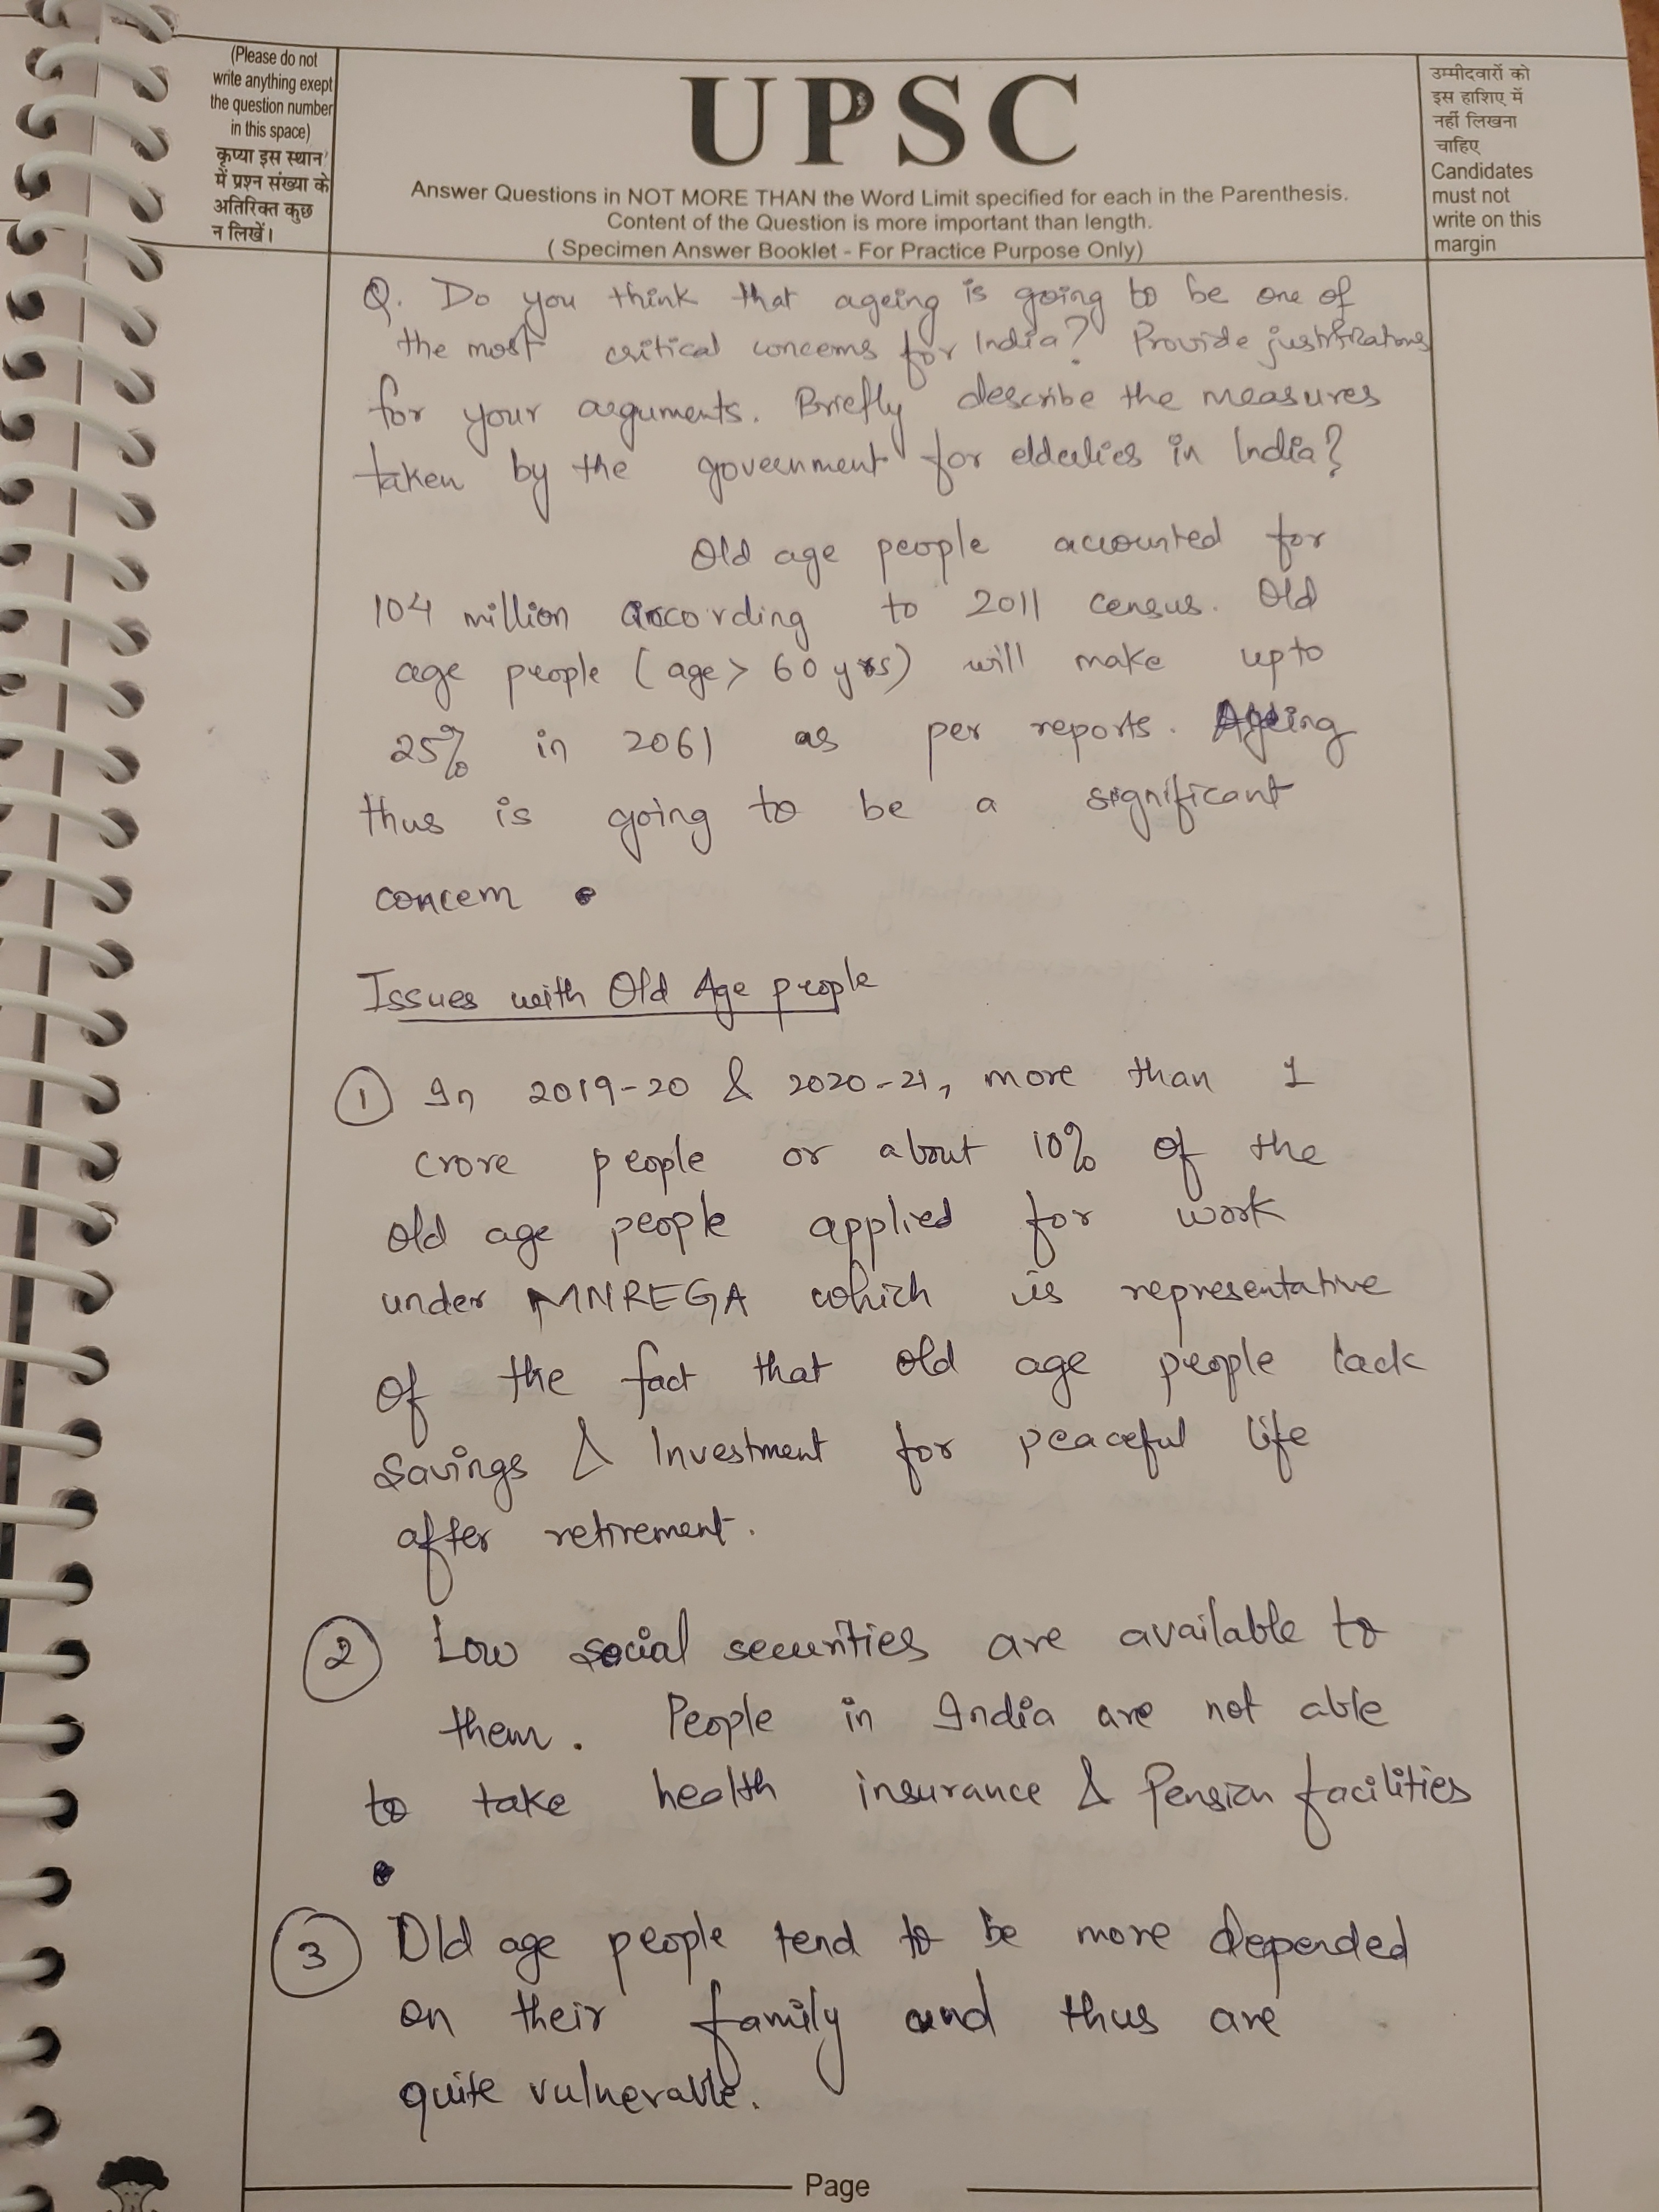 (Please do not
write anything exept
the question number
in this space)
कृप्या इस स्थान
में प्रश्न संख्या के
अतिरिक्त कुछ
न लिखें।
UPSC
Answer Questions in NOT MORE THAN the Word Limit specified for each in the Parenthesis.
Content of the Question is more important than length.
( Specimen Answer Booklet - For Practice Purpose Only)
उम्मीदवारों को
इस हाशिए में
नहीं लिखना
चाहिए
Candidates
must not
write on this
margin
Q. Do you think that ageing is going to be one of
the most critical concerns for India? Provide justifications
for your arguments. Briefly describe the measures
taken by the government for elderlies in India?
Old age people accounted for
104 million according to 2011 census. Old
age people (age > 60 yrs) will make upto
25% in 2061 as per reports. Ageing
thus is going to be a significant
concern.
Issues with Old Age people
① In 2019-20 & 2020-21, more than 1
crore people or about 10% of the
old age people applied for work
under MNREGA which is representative
of the fact that old age people lack
savings & Investment for peaceful life
after retirement.
② Low social securities are available to
them. People in India are not able
to take health insurance & Pension facilities
.
③ Old age people tend to be more depended
on their family and thus are
quite vulnerable.
Page